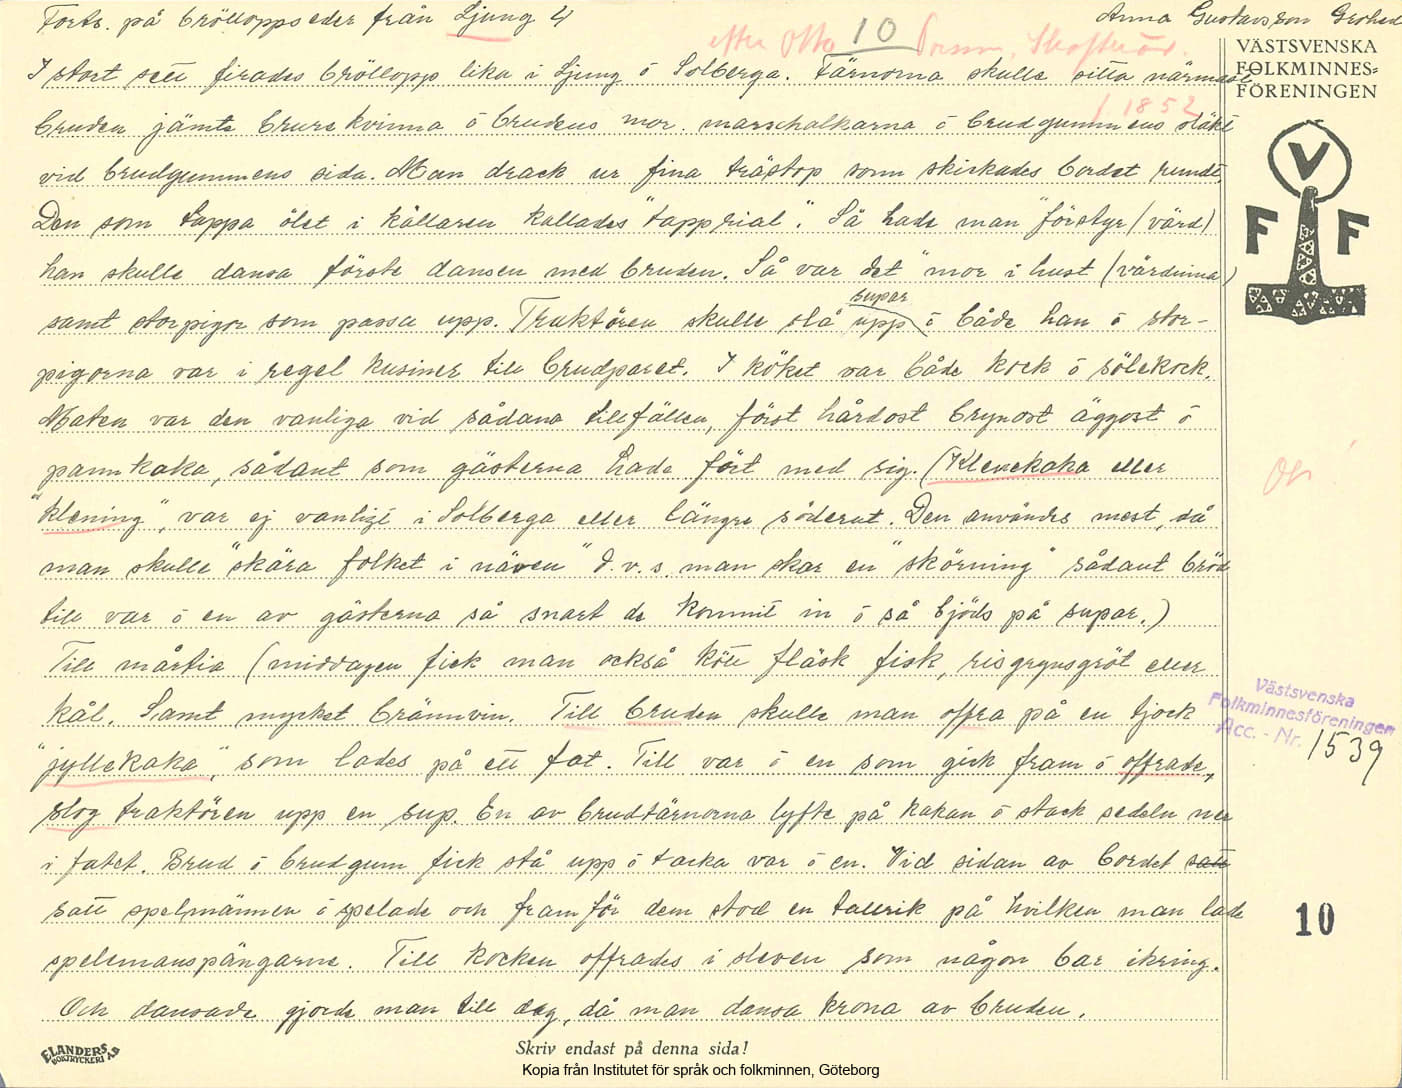 Forts. på bröllopps seder från Ljung 4
Anna Gustavsson Grohed
efter Otto 10
f 1852
VÄSTSVENSKA
FOLKMINNES=
FÖRENINGEN
V
F F
I stort sett firades bröllopp lika i Ljung ö Solberga. Tärnorna skulle sitta närmast
bruden jämte brurekvinna ö brudens mor. marschalkarna ö brudgummens släkt
vid brudgummens sida. Man drack ur fina trästop som skickades bordet rundt.
Den som tappa ölet i källaren kallades "tapprial". Så hade man "förstyr (värd)
han skulle dansa förste dansen med bruden. Så var det "mor i hust (värdinna)
samt storpigor som passa upp. Traktören skulle slå supar upp ö både han ö stor-
pigorna var i regel kusiner till brudparet. I köket var både kock ö sölekock.
Maten var den vanliga vid sådana tillfällen, först hårdost brynost äggost ö
pannkaka, sådant som gästerna hade fört med sig. (Klenekaka eller
"klening", var ej vanligt i Solberga eller längre söderut. Den användes mest, då
man skulle "skära folket i näven" d.v.s. man skar en "skörning" sådant bröd
till var ö en av gästerna så snart de kommit in ö så bjöds på supar.)
Till mårtia (middagen fick man också kött fläsk fisk, risgrynsgröt eller
kål. Samt mycket brännvin. Till bruden skulle man offra på en tjock
"jyllekaka", som lades på ett fat. Till var ö en som gick fram ö offrade,
slog traktören upp en sup. En av brudtärnorna lyfte på kakan ö stack sedeln ner
i fatet. Brud ö brudgum fick stå upp ö tacka var ö en. Vid sidan av bordet satt
satt spelmännen ö spelade och framför dem stod en tallrik på hvilken man lade
spelemanspängarne. Till kocken offrades i sleven som någon bar ikring.
Och dansade gjorde man till dag, då man dansa krona av bruden.
Västsvenska
Folkminnesföreningen
Acc. - Nr. 1539
10
ELANDERS
BOKTRYCKERI AB
Skriv endast på denna sida!
Kopia från Institutet för språk och folkminnen, Göteborg